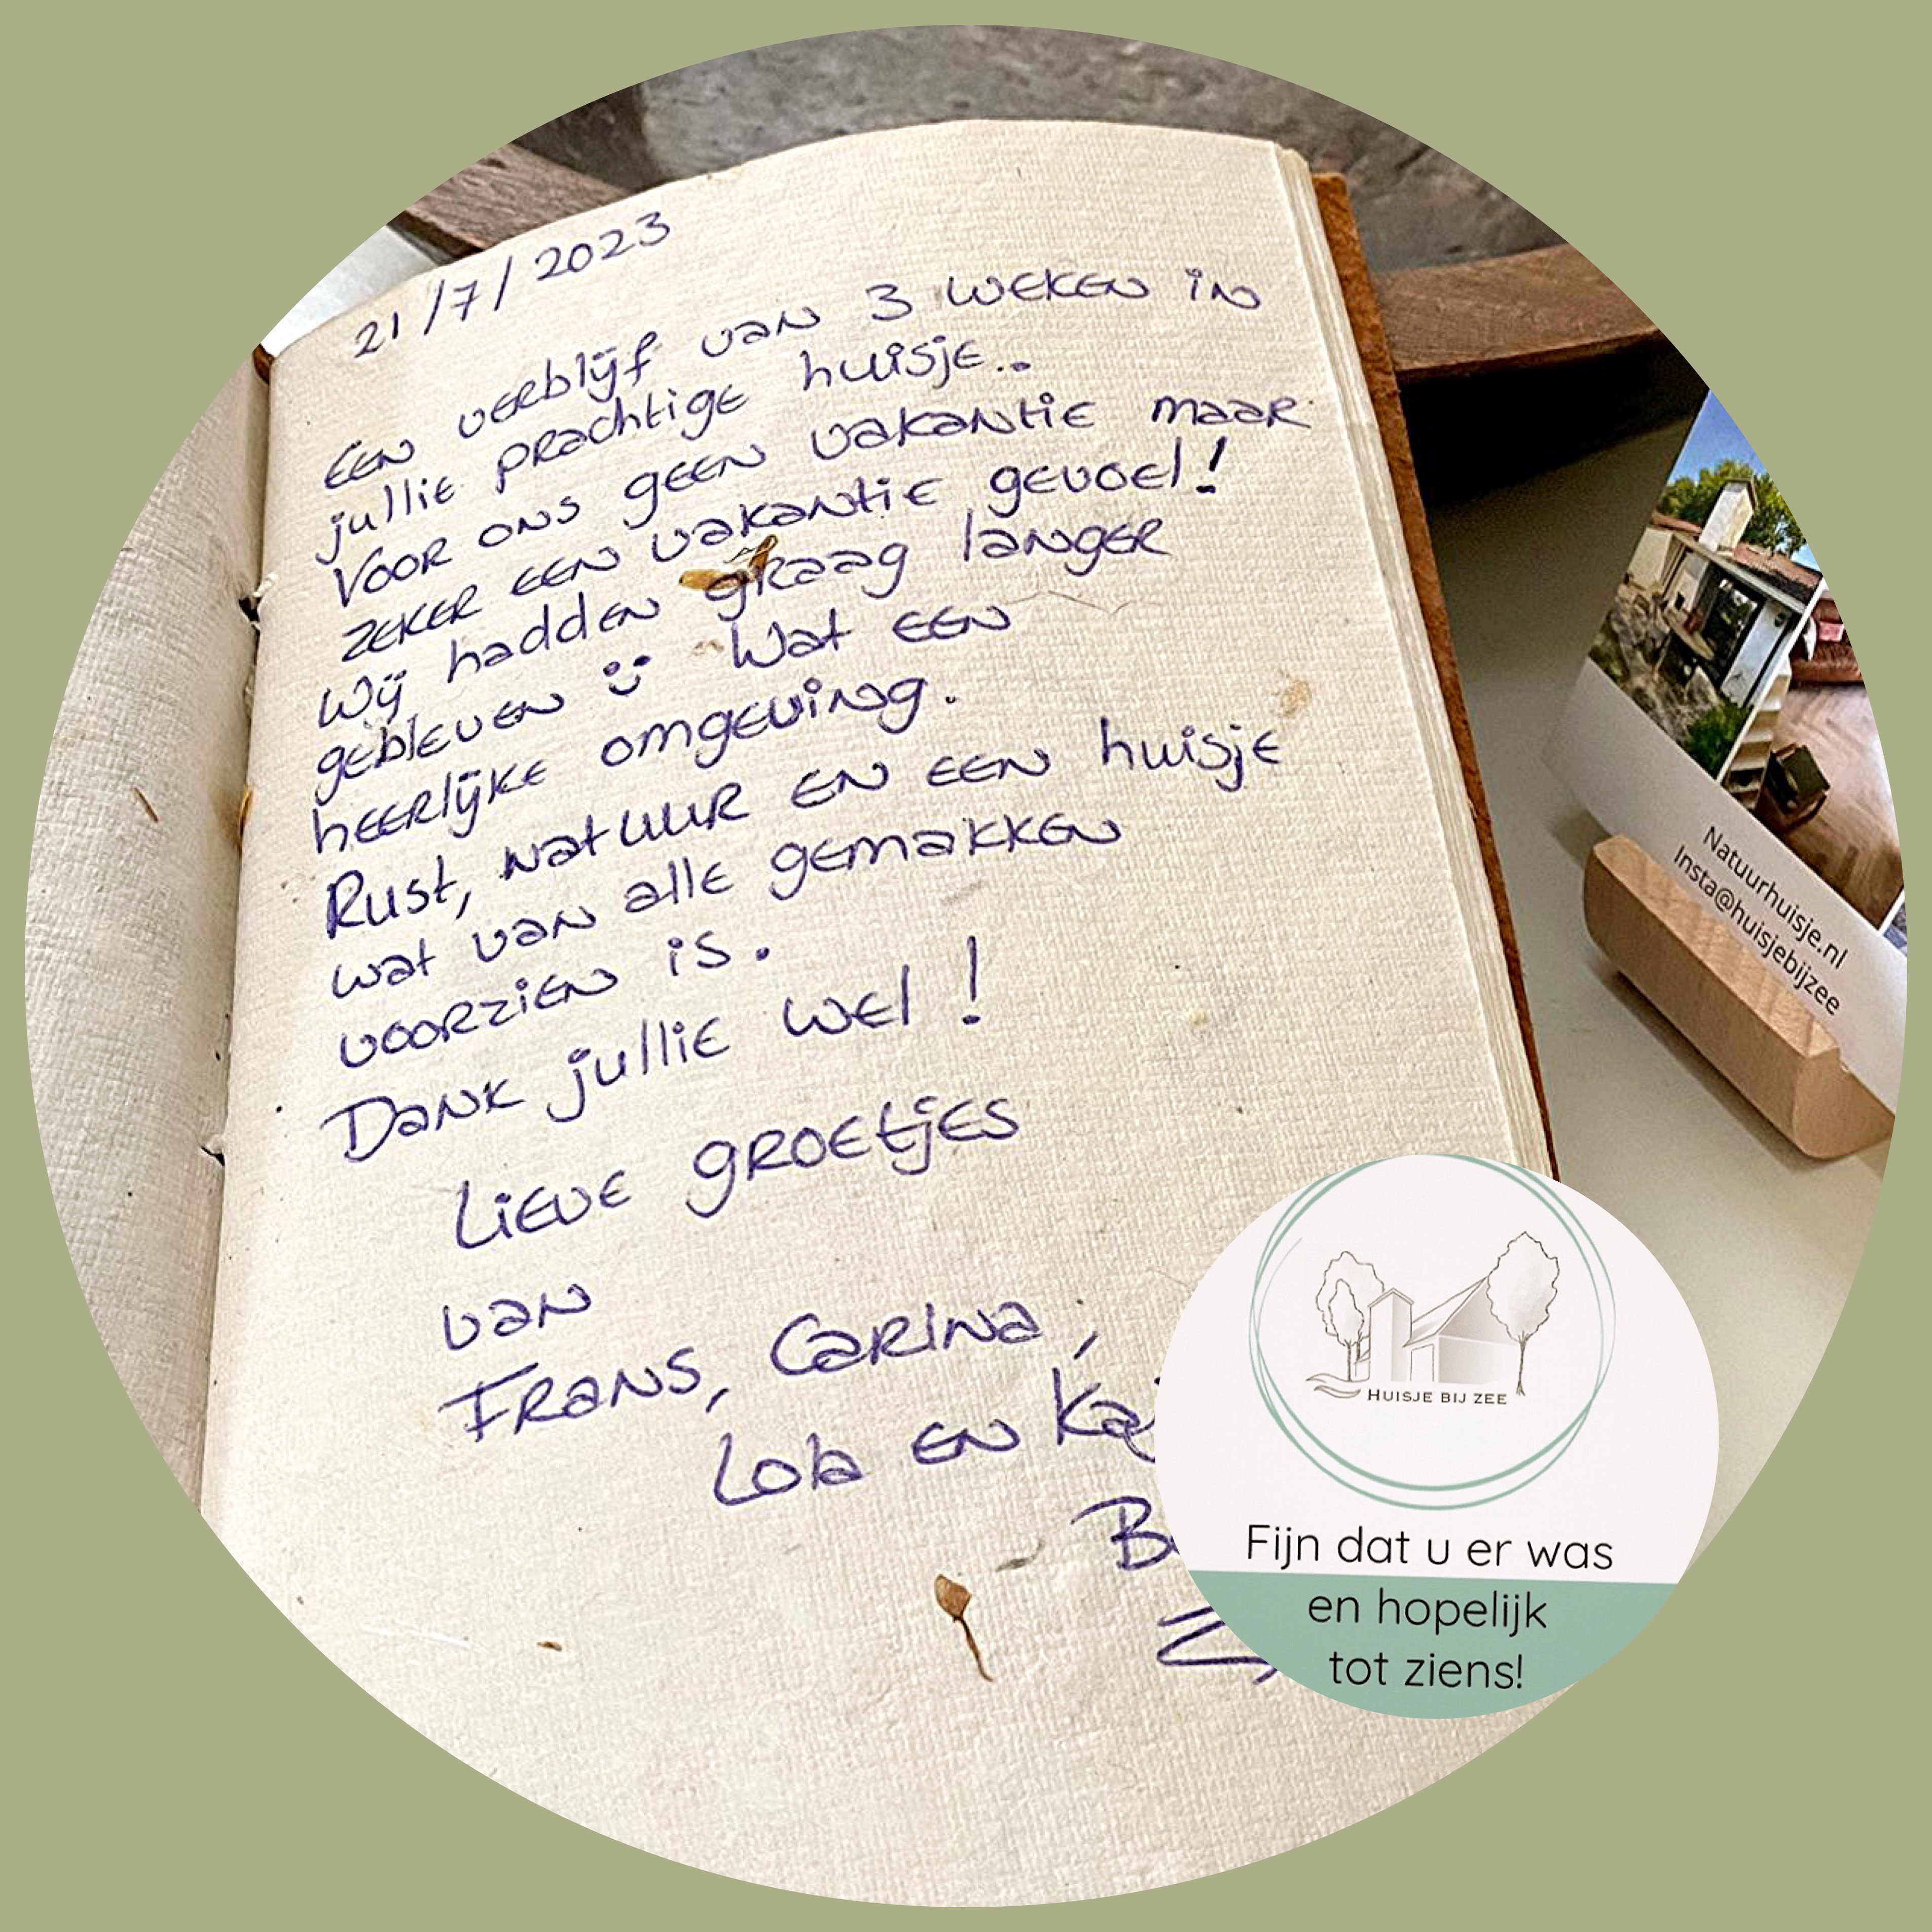 21/7/2023
Één verblijf van 3 weken in
jullie prachtige huisje..
Voor ons geen vakantie maar
zeker een vakantie gevoel!
Wij hadden graag langer
gebleven :) Wat een
heerlijke omgeving.
Rust, natuur en een huisje
wat van alle gemakken
voorzien is.
Dank jullie wel!
Lieve groetjes
van
Frans, Carina,
Lola en
Natuurhuisje.nl
Insta@huisjebijzee
HUISJE BIJ ZEE
Fijn dat u er was
en hopelijk
tot ziens!